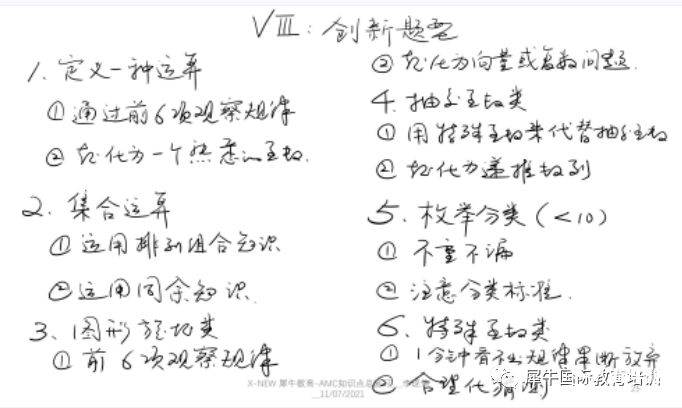 VIII：创新题型
1. 定义一种运算
① 通过前6项观察规律
② 转化为一个熟悉的函数.
2. 集合运算
① 运用排列组合知识
② 运用同余知识.
3. 图形变换类
① 前6项观察规律
② 转化为向量或复数问题.
4. 抽象函数类
① 用特殊函数来代替抽象函数
② 转化为递推数列
5. 枚举分类（<10）
① 不重不漏
② 注意分类标准.
6. 特殊函数类
① 1分钟看不出规律果断放弃
② 合理化猜测
X-NEW 犀牛教育-AMC知识点总
11/07/2021
犀牛国际教育培训